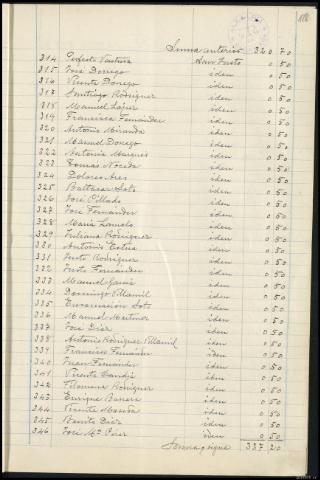 Suma anterior 320 70
314 Perfecto San Justo 0 50
315 José Donego iden 0 50
316 Vicente Donego iden 0 50
317 Santiago Rodriguez iden 0 50
318 Manuel iden 0 50
319 Francisca Fernández iden 0 50
320 Antonio Miranda iden 0 50
321 Manuel Donego iden 0 50
322 Antonia Marqués iden 0 50
323 Tomás Noceda iden 0 50
324 Dolores iden 0 50
325 Baltasar Soto iden 0 50
326 José iden 0 50
327 José Fernández iden 0 50
328 Maria iden 0 50
329 Juliana Rodriguez iden 0 50
330 Antonio iden 0 50
331 Justo Rodriguez iden 0 50
332 Justo Fernandez iden 0 50
333 Manuel Garcia iden 0 50
334 Domingo Villamil iden 0 50
335 Encarnación Soto iden 0 50
336 Manuel Martinez iden 0 50
337 José Diaz iden 0 50
338 Antonio Rodriguez Villamil iden 0 50
339 Francisco Fernandez iden 0 50
340 Juan Fernandez iden 0 50
341 Vicente iden 0 50
342 Filomena Rodriguez iden 0 50
343 Enrique iden 0 50
344 Vicente iden 0 50
345 Benito Diaz iden 0 50
346 José Mª Pérez iden 0 50
Suma y sigue 337 20